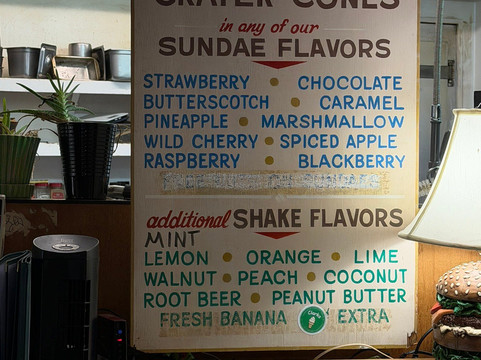 CRATER CONES
in any of our
SUNDAE FLAVORS
STRAWBERRY • CHOCOLATE
BUTTERSCOTCH • CARAMEL
PINEAPPLE • MARSHMALLOW
WILD CHERRY • SPICED APPLE
RASPBERRY • BLACKBERRY
additional SHAKE FLAVORS
MINT
LEMON • ORANGE • LIME
WALNUT • PEACH • COCONUT
ROOT BEER • PEANUT BUTTER
FRESH BANANA EXTRA